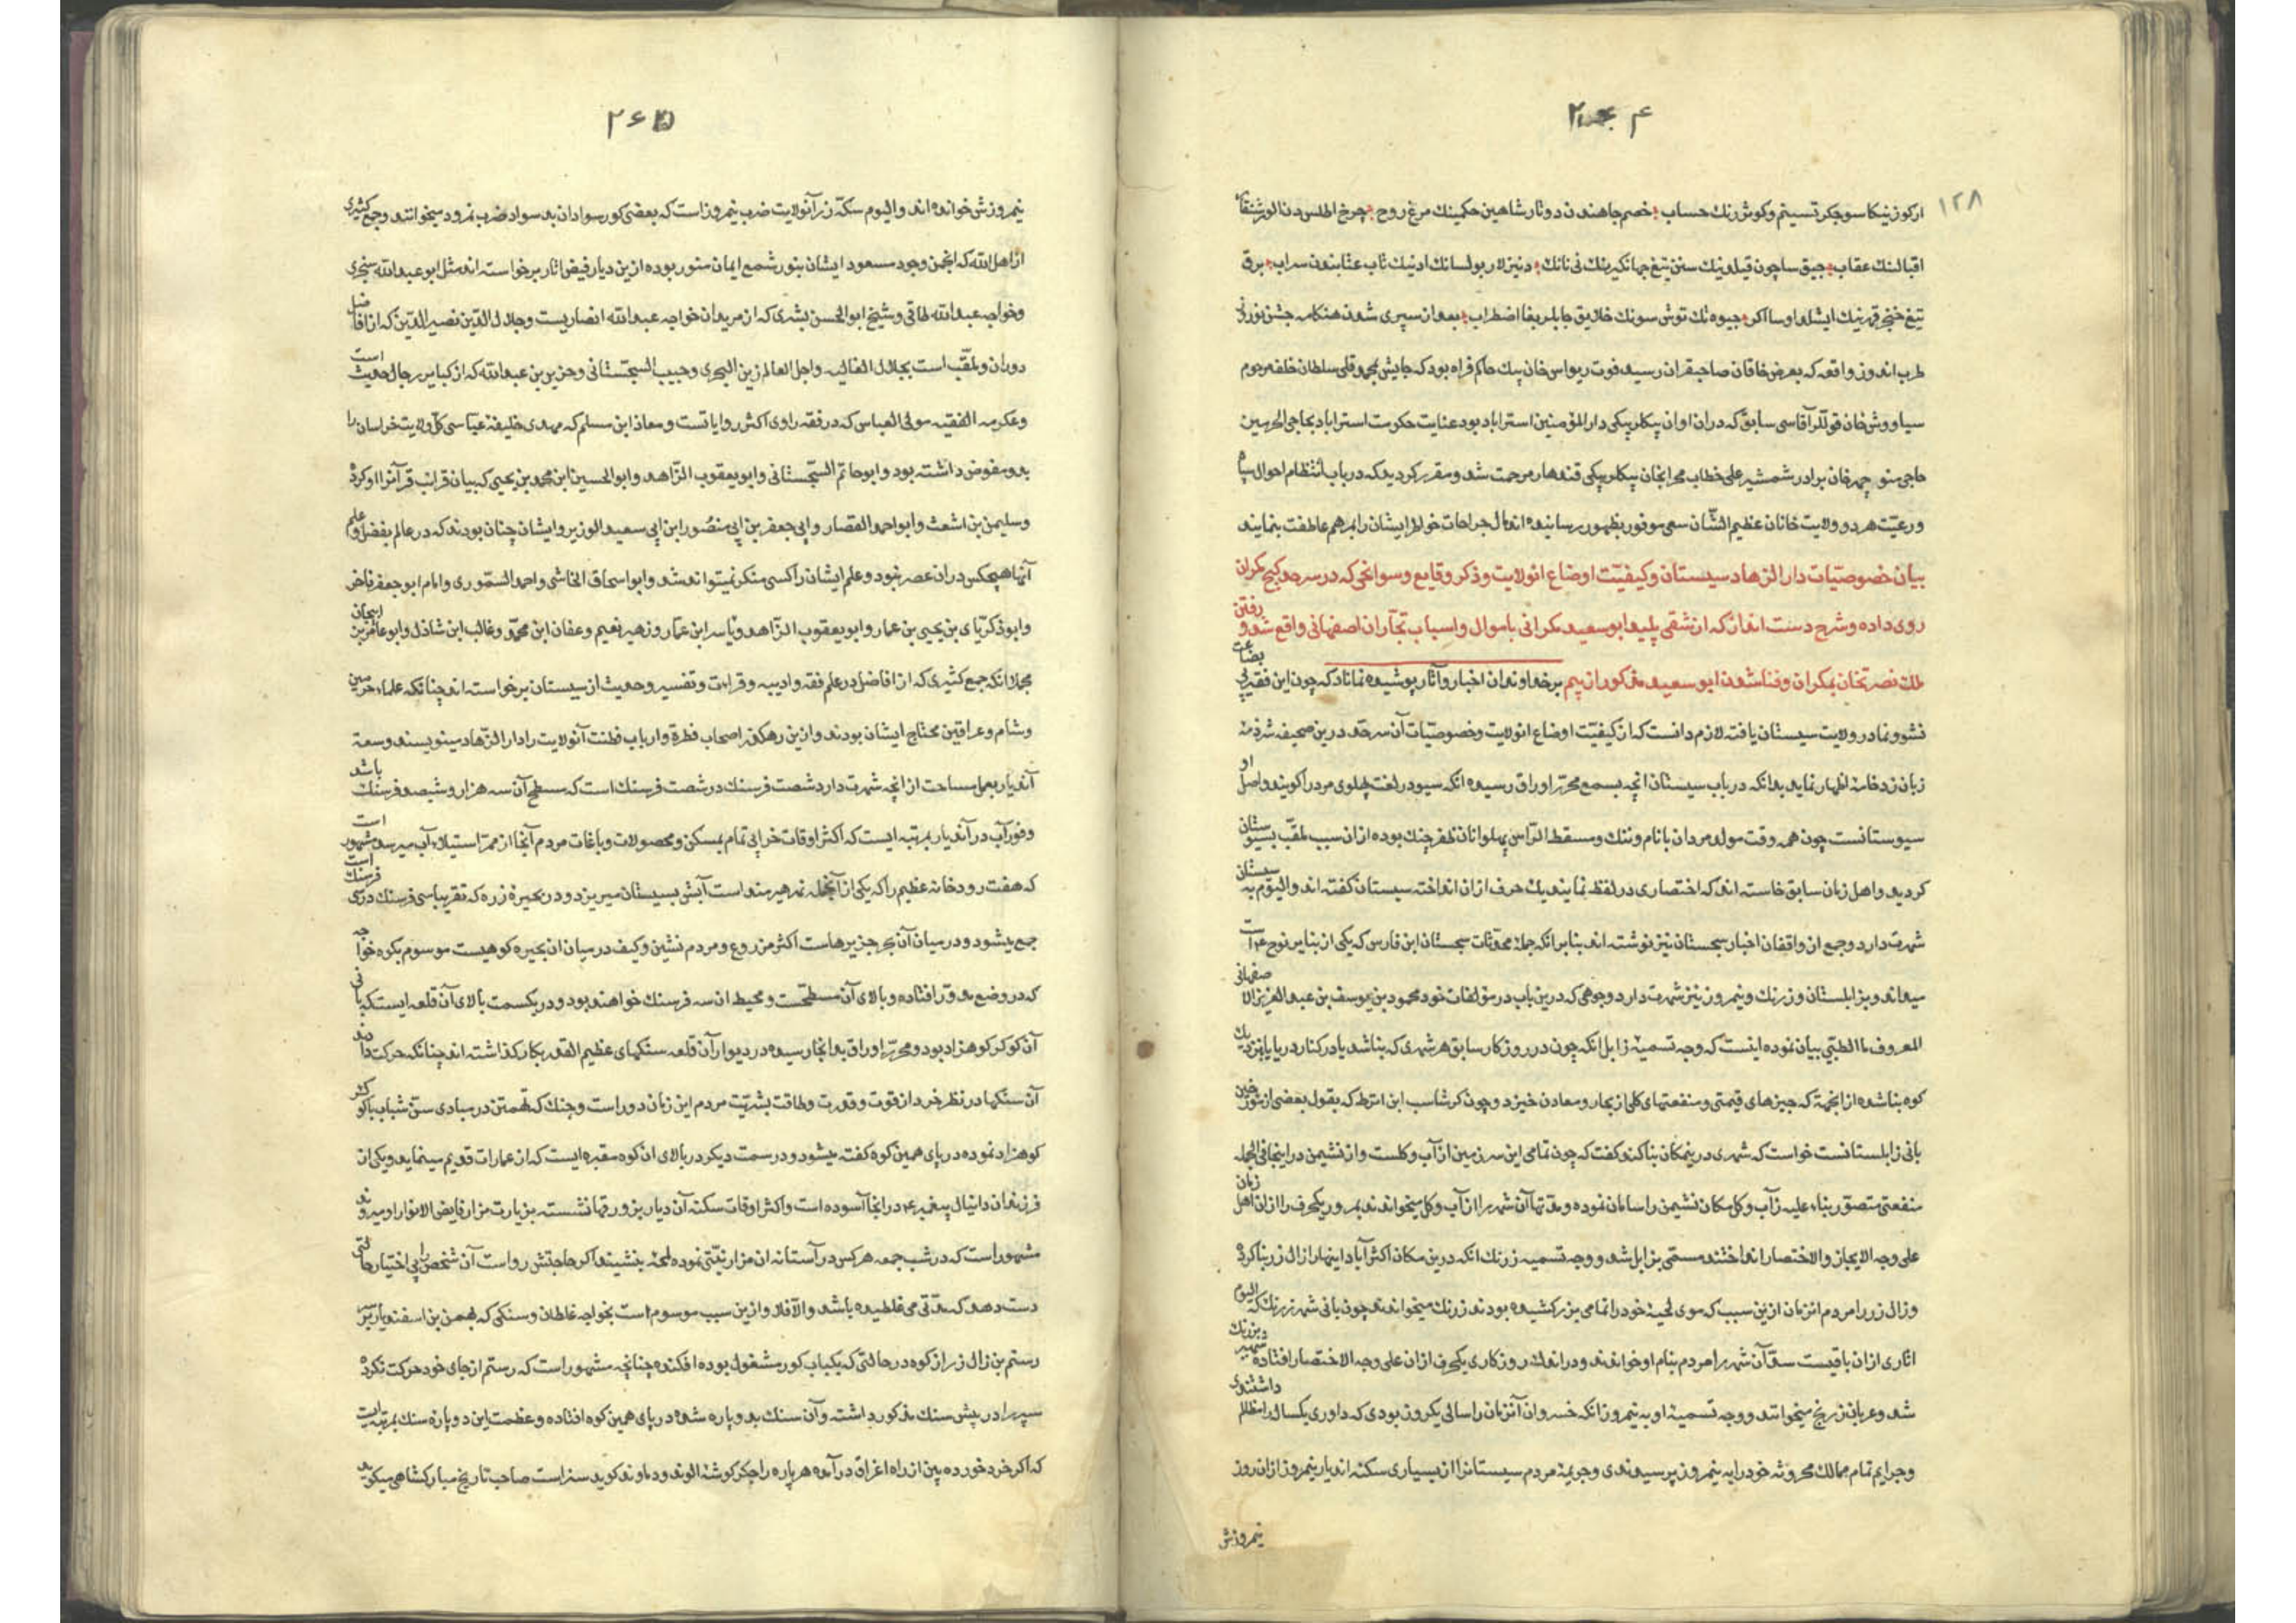 ۲۶۴
۱۲۸
ارکوزنیکا سوجکر تسینم وکوش رنك حساب خصم جاهندن دوتار شاهین حکمینك مرغ روح چرخ اطلس دن الور
اقبالنك عقاب جیق ساچون قیلدینك سنن تیغ جهانکیرینك نی نانك دنیزلار بولسانك ادنیك تاب عتابندون سراب برق
تیغ خنجر قهرینك ایشلد اوسا اکر جیوه تك توش سونك خلایق جابلریفا اضطراب بعد از سپری شدن هنکامه جشن نوروز
طرب اندوز واقعه که بعرض خاقان صاحبقران رسید فوت ریواس خان بیك حاکم فراه بود که جایش بمحمد قلی سلطان خلف مرحوم
سیاووش خان قوللر آقاسی سابق که دران اوان بیکلربیکی دار المؤمنین استراباد بود عنایت حکومت استراباد بحاجی الحرمین
حاجی منوچهر خان برادر شمشیر علی خطاب محرابخان بیکلربیکی قندهار مرحمت شد و مقرر کردید که در باب انتظام احوال سپاه
و رعیت هر دو ولایت خانان عظیم الشان سعی موفور بظهور رسانیده اندمال جراحات خواطر ایشان را بمرهم عاطفت بنمایند
بیان خصوصیات دار الزهاد سیستان وکیفیت اوضاع انولایت وذکر وقایع وسوانحی که در سرحد کیج مکران
روی داده وشرح دست اندازکه از شقی پلید ابو سعید مکرانی باموال واسباب تجاران اصفهانی واقع شد و رفتن
ملك نصرتخان بمکران وفنا شدن ابو سعید مذکور از بیم برخداوندان اخبار وآثار پوشیده نماناد که چون این فقیر بی بضاعت
نشو ونما در ولایت سیستان یافته لازم دانست که از کیفیت اوضاع انولایت وخصوصیات آن سرحد درین صحیفه شرذمهٔ
زبان زد خامهٔ اظهار نماید بدانکه در باب سیستان انچه بسمع محرر اوراق رسیده انکه سیو در لغت پهلوی مرد را کویند واصل او
سیوستانست چون همه وقت مولد مردان با نام وننك ومسقط الراس پهلوانان ظفر چنك بوده ازان سبب ملقب بسیوستان
کردید واهل زبان سابق خاسته اند که اختصاری در لفظ نمایند یك حرف ازان انداخته سیستان کفته اند والیوم به سیستان
شهرت دارد وجمع از واقفان اخبار سجستان نیز نوشته اند بنا برانکه جملهٔ محدثات سجستان ابن فارس که یکی از بنایر نوح ع است
میداند وبزابلستان وزرنك ونیمروز نیز شهرت دارد ووجوهی که درین باب در مؤلفات خود محمود بن یوسف بن عبد العزیز الاصفهانی
المعروف بالطبی بیان نموده اینست که وجه تسمیهٔ زابل انکه چون در روزکار سابق هر شهری که بنا شد یا در کنار دریا یا بنزدیك
کوه بنا شده از انجهة که چیزهای قیمتی ومنفعتهای کلی از بحار ومعادن خیزد وچون کرشاسب ابن اترط که بقول بعضی از مورخین
بانی زابلستانست خواست که شهری در ینمکان بنا کند وکفت که چون تمامی این سرزمین از آب وکلست واز نشیمن در اینجا فی الجمله
منفعتی متصور بناء علیه زآب وکل مکان نشیمن را سامان نموده ومدتها آن شهر را از آب وکل میخواندند بمرور یکحرف را ازان اهل زبان
علی وجه الایجاز والاختصار انداختند مسمی بزابل شد ووجه تسمیه زرنك انکه درین مکان اکثر آبادانیها را زال زر بنا کرده
وزال زر را مردم انزمان ازین سبب که موی لحیهٔ خود را تمامی بزر کشیده بودند زرنك میخواندند چون بانی شهر زرنك که الیوم
اثاری ازان باقیست سد آن شهر را مردم بنام او خواندند ودر اندك روزکاری یکحرف ازان علی وجه الاختصار افتاده بزرنك شهیر
شد وعربان زرنج میخوانند ووجه تسمیهٔ او به نیمروز انکه خسروان آنزمان را سالی یکروز بودی که داوری یکساله را مظالم داشتندی
وجرایم تمام ممالك محروثهٔ خود را به نیمروز پرسیدندی وجریمهٔ مردم سیستانرا از بسیاری سکنه اندیار بنیمروز ازان روز
نیمروزش
۲۶۵
نیمروزش خوانده اند والیوم سکهٔ زر آنولایت ضرب نیمروز است که بعضی کور سوادان بد سواد ضرب نمرود میخوانند وجمع کثیری
از اهل الله که انجمن وجود مسعود ایشان بنور شمع ایمان منور بوده از ین دیار فیض اثار برخواسته اند مثل ابو عبد الله سنجری
وخواجه عبد الله طاقی وشیخ ابو الحسن بشری که از مریدان خواجه عبد الله انصاریست وجلال الدین نصیر الدین که از افاضل
دوران وملقب است بجلال العالیه واجل العالم زین السجزی وحبیب السجستانی وحزیز بن عبد الله که از کبایر رجال حدیث است
وعکرمه الفقیه مولی العباس که در فقه راوی اکثر روایاتست ومعاذ ابن مسلم که مهدی خلیفهٔ عباسی کل ولایت خراسان را
بدو مفوض داشته بود وابو حاتم السجستانی وابو یعقوب الزاهد وابو الحسین ابن محمد بن یحیی که بیان قرائت قرآنرا او کرده
وسلیمن بن اشعث وابو احمد القصار وابی جعفر بن ابی منصور ابن ابی سعید الوزیر وایشان چنان بودند که در عالم بفضل وعلم
آنها هیچکس دران عصر نبود وعلم ایشان را کسی منکر نمیتواند شد وابو اسحاق الخاشی واحمد السموری وامام ابو جعفر ناخر
وابو ذکریای بن یحیی بن عمار وابو یعقوب الزاهد ویاسر ابن عمار وزهیر نعیم وعفان ابن محمد وغالب ابن شاذل وابو عامر بن ابیجان
مجملا انکه جمع کثیری که از افاضل در علم فقه وادبیه وقراءت وتفسیر وحدیث از سیستان برخواسته اند چنانکه علماء حرمین
وشام وعراقین محتاج ایشان بودند وازین رهکذر اصحاب فطرة وارباب فطنت آنولایت را دار الزهاد مینویسند وسعة
آندیار بعمل مساحت از انچه شهرت دارد شصت فرسنك در شصت فرسنك است که سطح آن سه هزار وششصد فرسنك باشد
وفور آب در آندیار بمرتبه ایست که اکثر اوقات خرابی تمام بمسکن ومحصولات وباغات مردم آنجا از ممر استیلاء آب میرسد مشهور است
که هفت رودخانه عظیم را که یکی از آنجمله نهر هیرمند است آبش بسیستان میریزد ودر بحیرهٔ زره که تقریبا سی فرسنك در سی فرسنك است
جمع میشود ودر میان آن بحر جزیرهاست اکثر مزروع ومردم نشین وکیف در میان ان بحیره کوهیست موسوم بکوه خواجه
که در وضع مدور افتاده وبالای آن مسطحست ومحیط ان سه فرسنك خواهد بود ودر یکسمت بالای آن قلعه ایست که بانی
آن کوکر کوهزاد بود ومحرر اوراق بدانجا رسیده در دیوار آن قلعه سنکهای عظیم القدر بکار کذاشته اند چنانکه حرکت دادن
آن سنکها در نظر خرد از قوت وقدرت وطاقت بشریت مردم این زمان دور است وجنك که تهمتن در مبادی سن شباب با کوکر
کوهزاد نموده در پای همین کوه کفته میشود ودر سمت دیکر در بالای ان کوه مقبره ایست که از عمارات قدیم مینماید ویکی از
فرزندان دانیال پیغمبر ع در انجا آسوده است واکثر اوقات سکنه آن دیار بزورقها نشسته بزیارت مزار فایض الانوار او میروند
مشهور است که در شب جمعه هر کس در آستانه ان مزار نیتی نموده لمحهٔ بنشیند اکر حاجتش رواست آن شخص را بی اختیار حالتی
دست دهد که مدتی می غلطیده باشد والا فلا وازین سبب موسوم است بخواجه غلطان وسنکی که بهمن بن اسفندیار بر سر
رستم بن زال زر از کوه در حالتی که بکباب کور مشغول بوده افکنده چنانچه مشهور است که رستم از جای خود حرکت نکرده
سپر را در پیش سنك مذکور داشته وآن سنك بدو پاره شده در پای همین کوه افتاده وعظمت این دو پاره سنك بمرتبه ایست
که اکر خرد خورده بین از راه اغراق در آمده هر پاره را جکر کوشهٔ الوند ودماوند کوید سزاست صاحب تاریخ مبارکشاهی میکوید